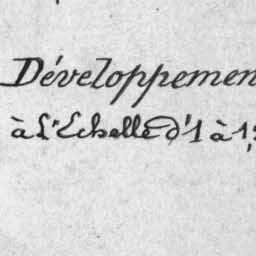 Développemen
à L'Echelle d'1 à 1,